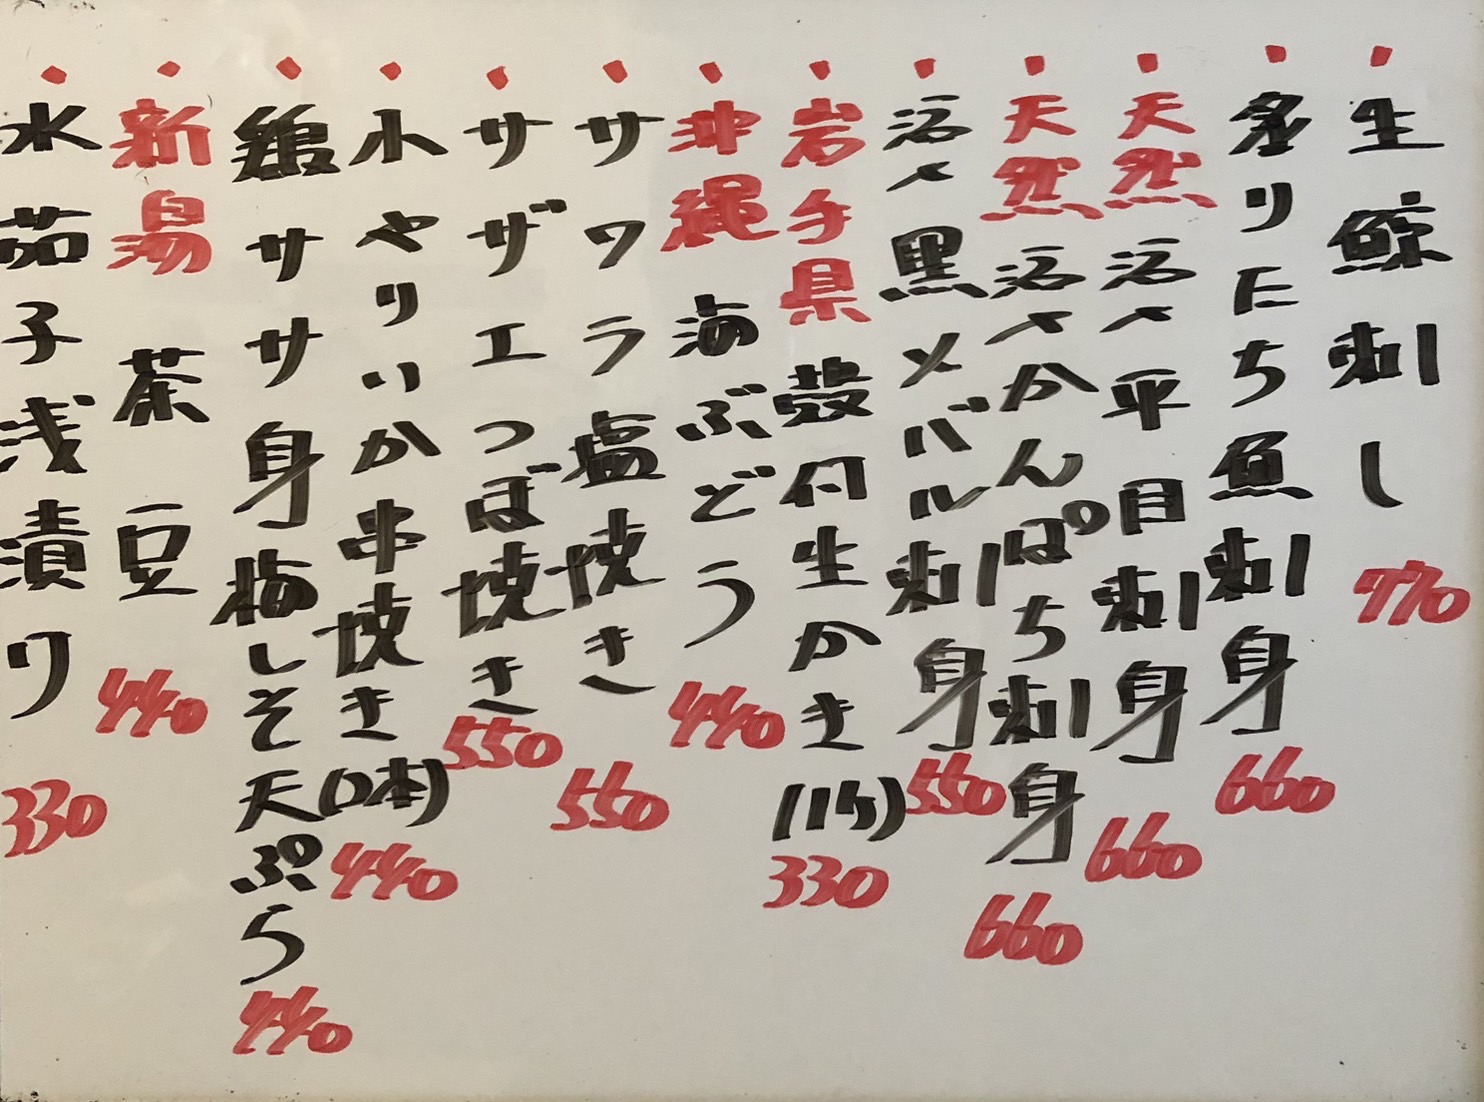 ・生鯨刺し 770
・炙りたち魚刺身 660
・天然活〆平目刺身 660
・天然活〆かんぱち刺身 660
・活〆黒メバル刺身 550
・岩手県殻付生かき(1ケ) 330
・沖縄海ぶどう 440
・サワラ塩焼き 550
・サザエつぼ焼き 550
・小やりいか串焼き(1本) 440
・鶏ササ身梅しそ天ぷら 440
・新潟茶豆 440
・水茄子浅漬り 330